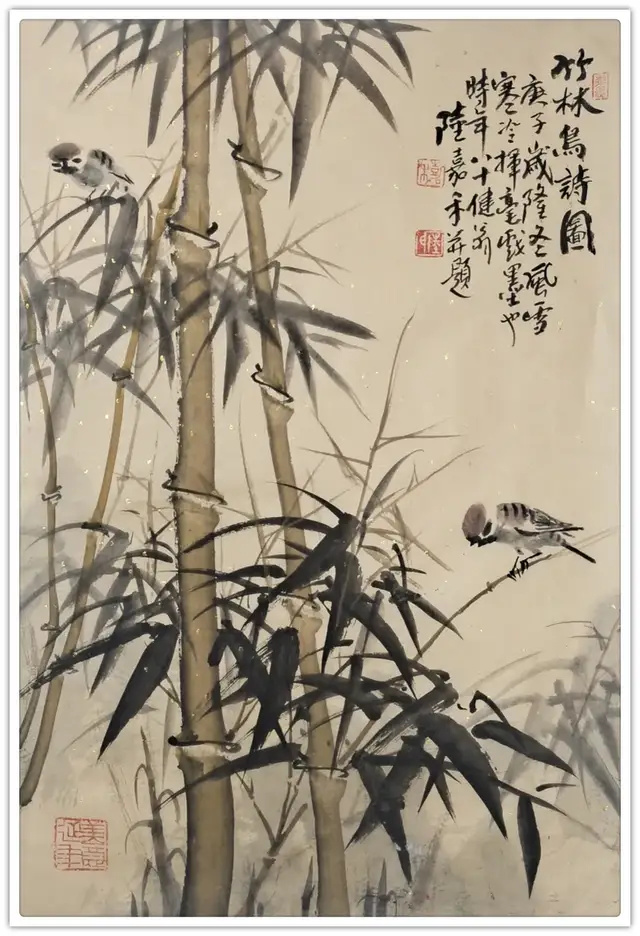 竹林鳥詩圖
庚子歲隆冬風雪
寒冷揮毫戲墨也
時年八十健翁
陸嘉禾并題
美意延年